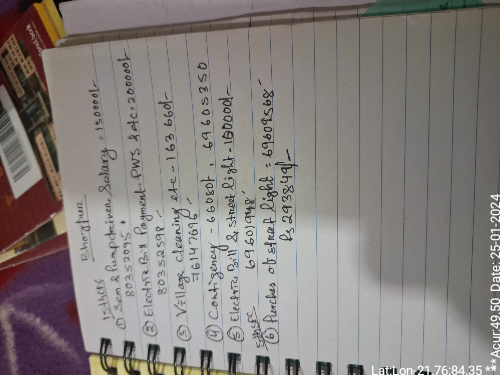 Bhogpur
15th FC
① Sem & Pumpdriver Salary = 150000/-
80352095
② Electric Bill Payment-PWS & etc = 200000/-
80352598
③ Village cleaning etc - 163660/-
76147696
④ Contigency 66080/- , 69605350
⑤ Electric Bill & Street light - 150000/-
69601948
5th SFC
⑥ Purches of street light = 69609568
Rs 293849/-
Lat:Lon-21.76:84.35 **Acur:49.50 Date: 25-01-2024